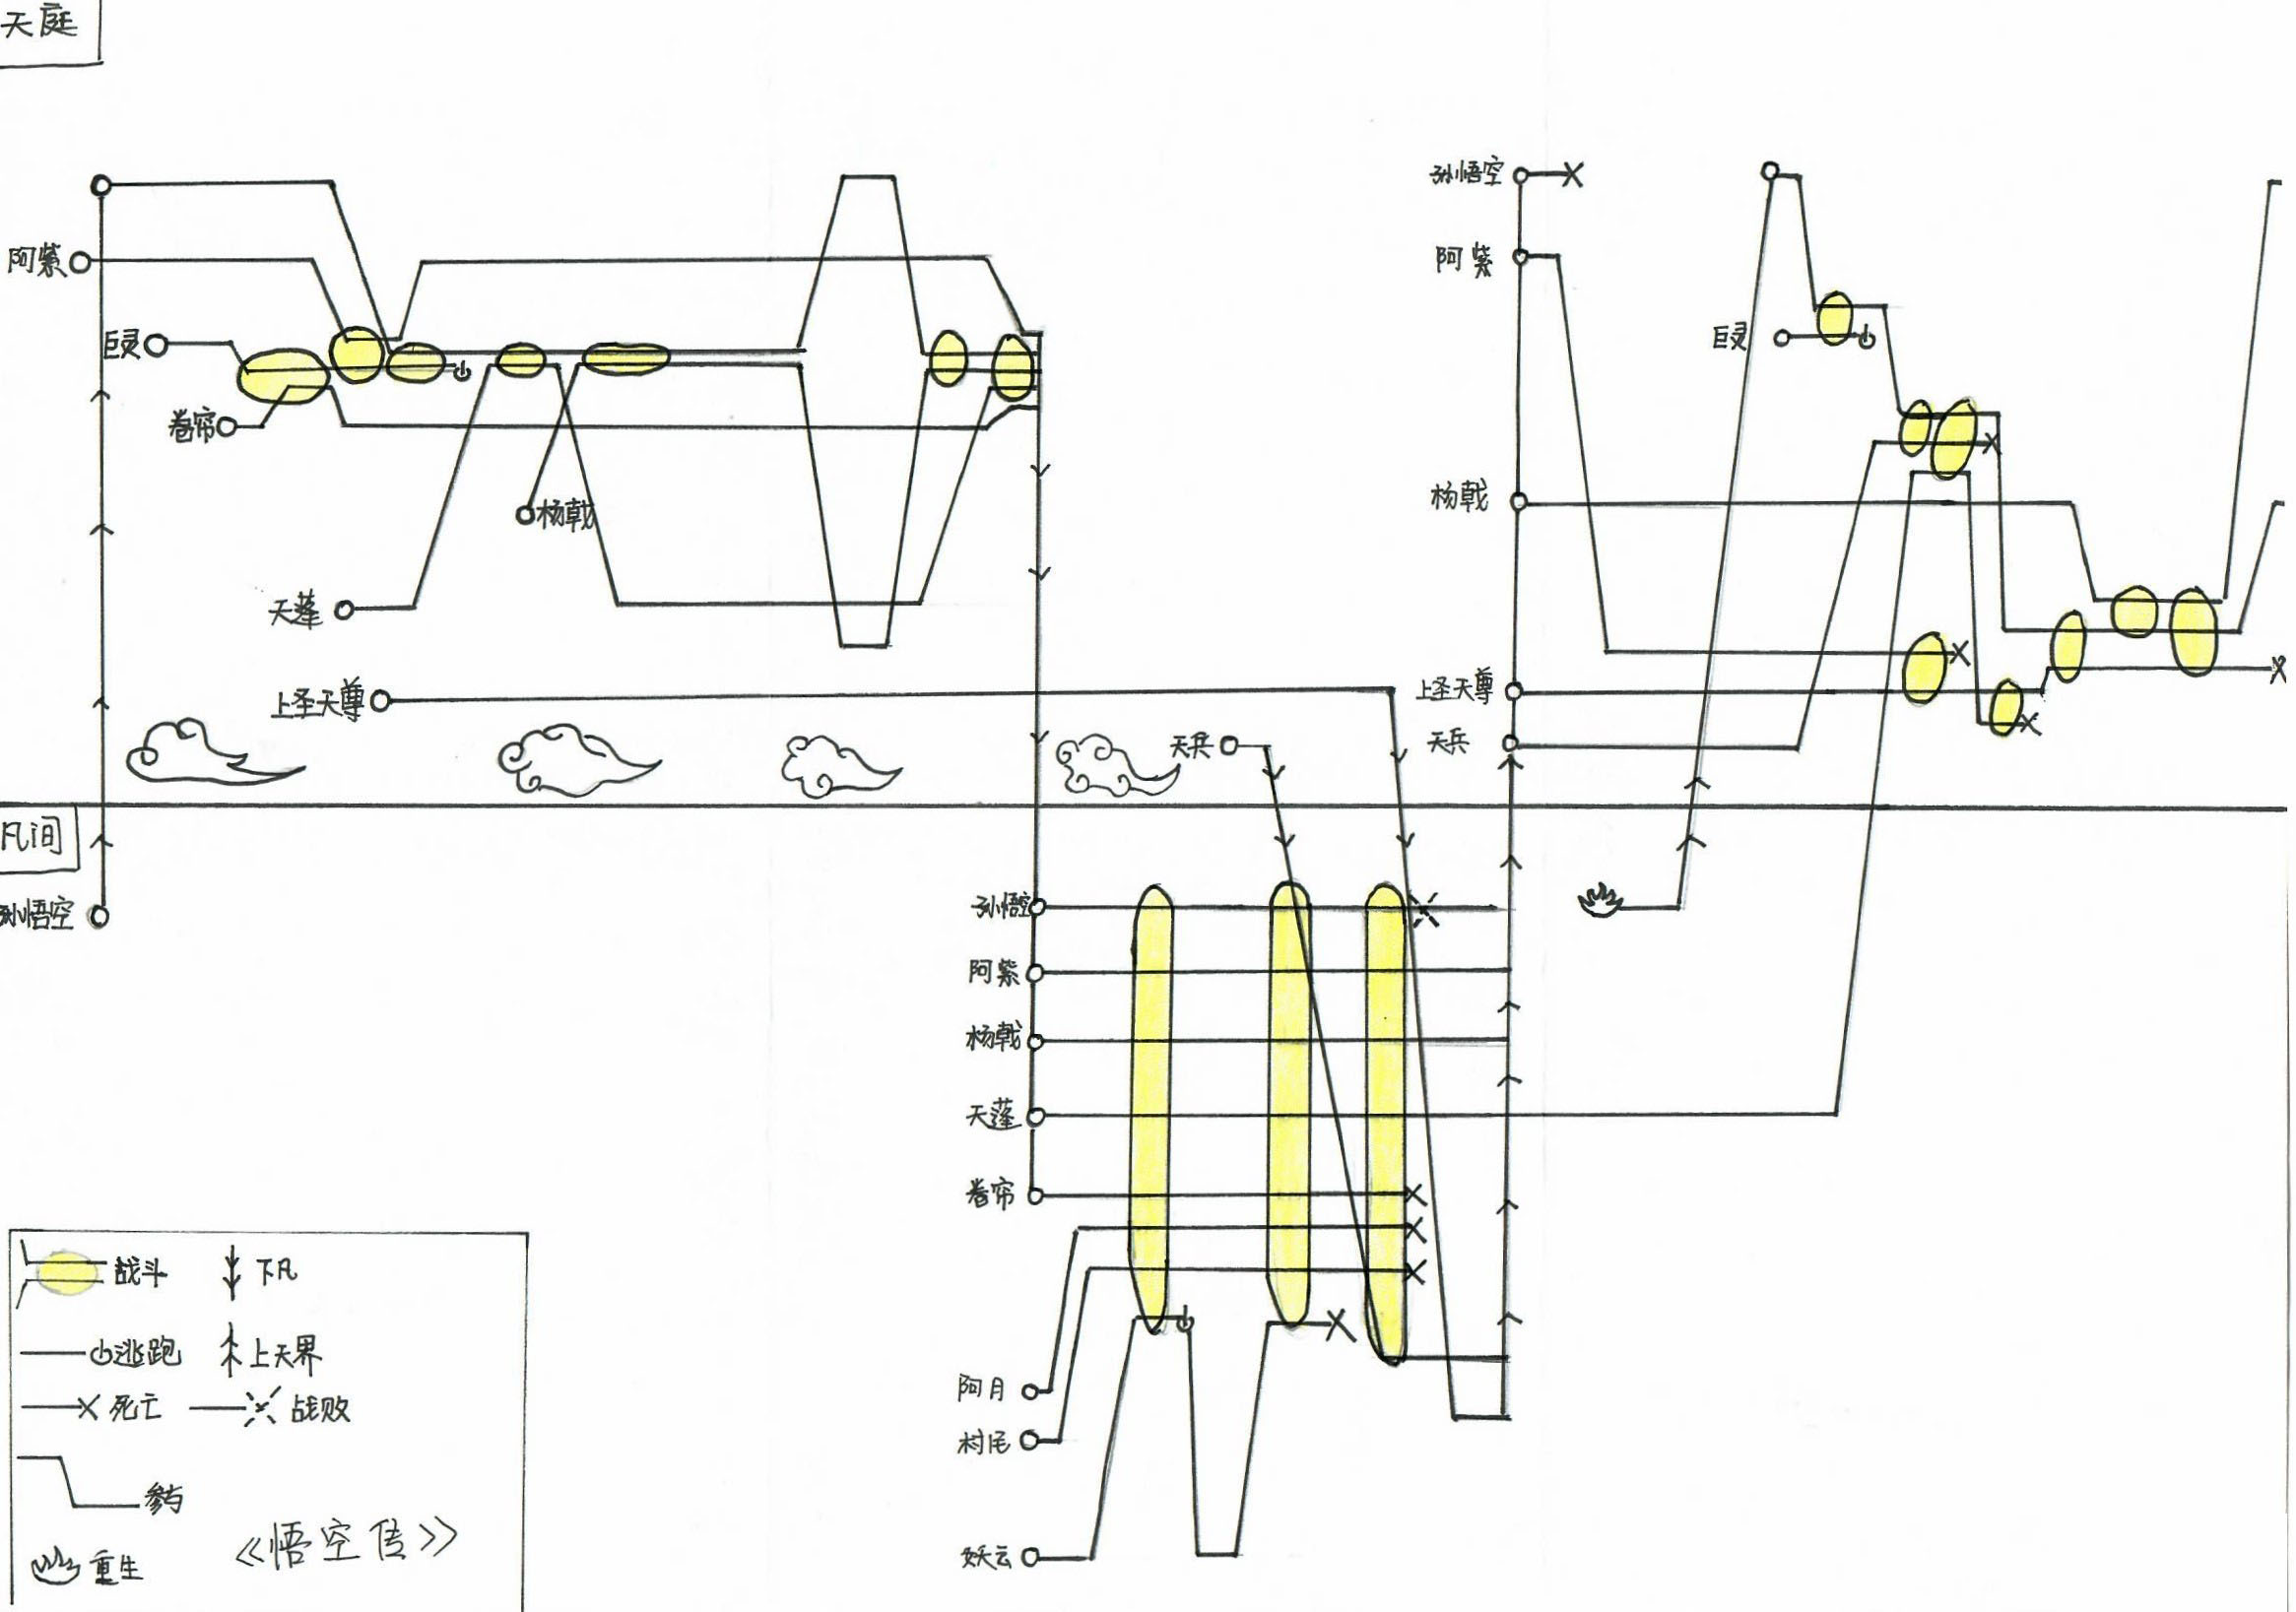 天庭
阿紫
巨灵
卷帘
杨戟
天蓬
上圣天尊
天兵
孙悟空
阿紫
杨戟
上圣天尊
天兵
巨灵
凡间
孙悟空
孙悟空
阿紫
杨戟
天蓬
卷帘
阿月
村尾
妖云
战斗
下凡
逃跑
上天界
死亡
战败
参与
重生
《悟空传》